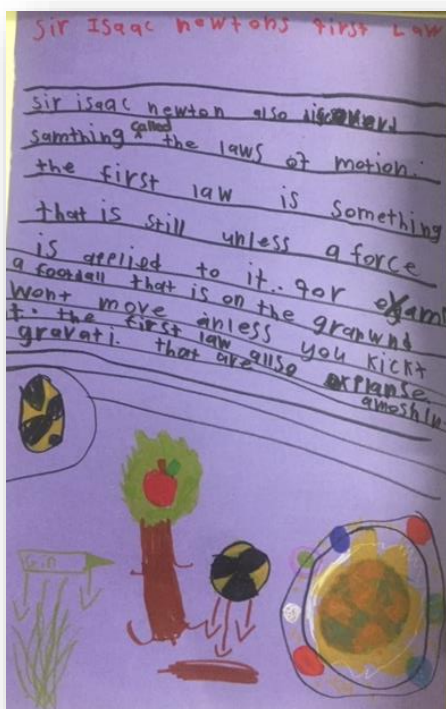 sir Isaac newtons first Law
sir isaac newton also discoverd
samthing called the laws of motion.
the first law is something
that is still unless a force
is applied to it. for exam
a football that is on the granwnd
wont move anless you kickt
t. the first law allso explanse
gravati. that are amoshin